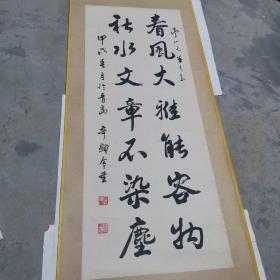 春风大雅能容物
秋水文章不染尘
甲戌春月於青岛